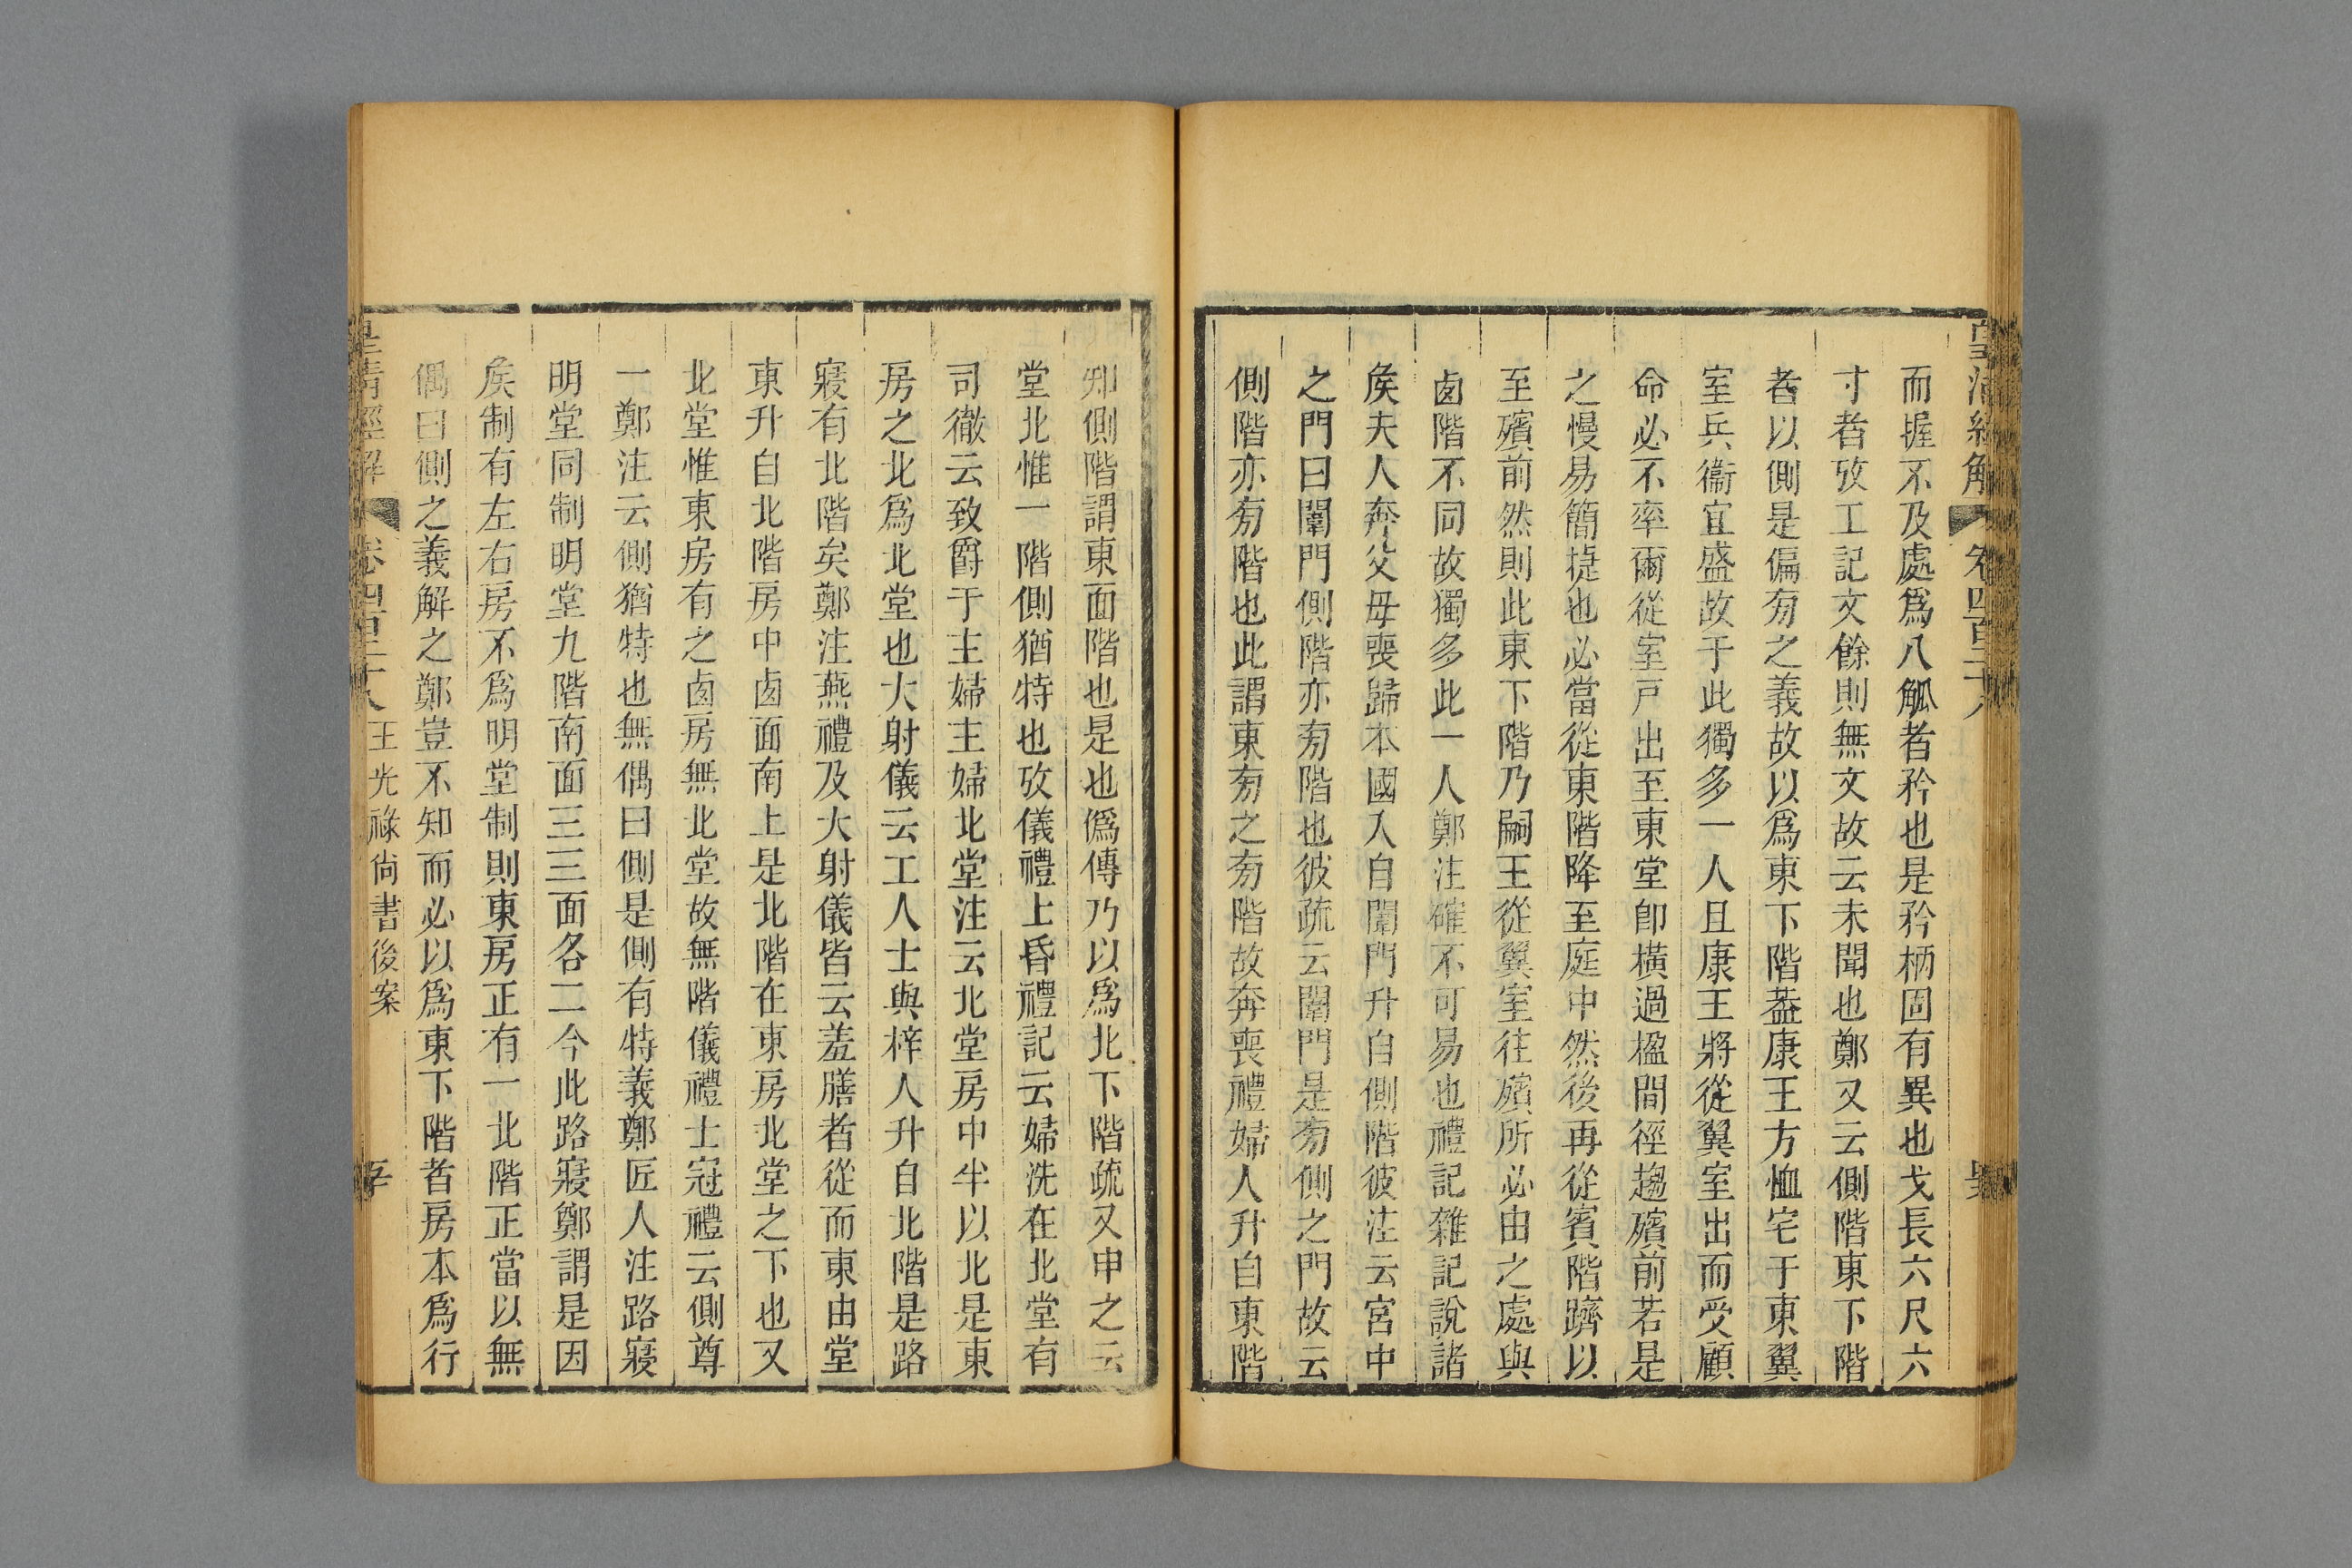 而握不及處爲八觚者矜也是矜柄固有異也戈長六尺六
寸者攷工記文餘則無文故云未聞也鄭又云側階東下階
者以側是偏㫄之義故以爲東下階葢康王方恤宅于東翼
室兵衞宜盛故于此獨多一人且康王將從翼室出而受顧
命必不率爾從室戸出至東堂卽橫過楹間徑趨殯前若是
之慢易簡㨗也必當從東階降至庭中然後再從賓階躋以
至殯前然則此東下階乃嗣王從翼室往殯所必由之處與
鹵階不同故獨多此一人鄭注確不可易也禮記雜記說諸
矦夫人奔父母喪歸本國入自闈門升自側階彼注云宮中
之門曰闈門側階亦㫄階也彼疏云闈門是㫄側之門故云
側階亦㫄階也此謂東㫄之㫄階故奔喪禮婦人升自東階
卽側階謂東面階也是也僞傳乃以爲北下階疏又申之云
堂北惟一階側猶特也攷儀禮上昏禮記云婦洗在北堂有
司徹云致爵于主婦主婦北堂注云北堂房中半以北是東
房之北爲北堂也大射儀云工人士與梓人升自北階是路
寢有北階矣鄭注燕禮及大射儀皆云羞膳者從而東由堂
東升自北階房中鹵面南上是北階在東房北堂之下也又
北堂惟東房有之鹵房無北堂故無階儀禮士冠禮云側尊
一鄭注云側猶特也無偶曰側是側有特義鄭匠人注路寢
明堂同制明堂九階南面三三面各二今此路寢鄭謂是因
矦制有左右房不爲明堂制則東房正有一北階正當以無
偶曰側之義解之鄭豈不知而必以爲東下階者房本爲行
皇清經解 卷四百二十八 王光祿尙書後案